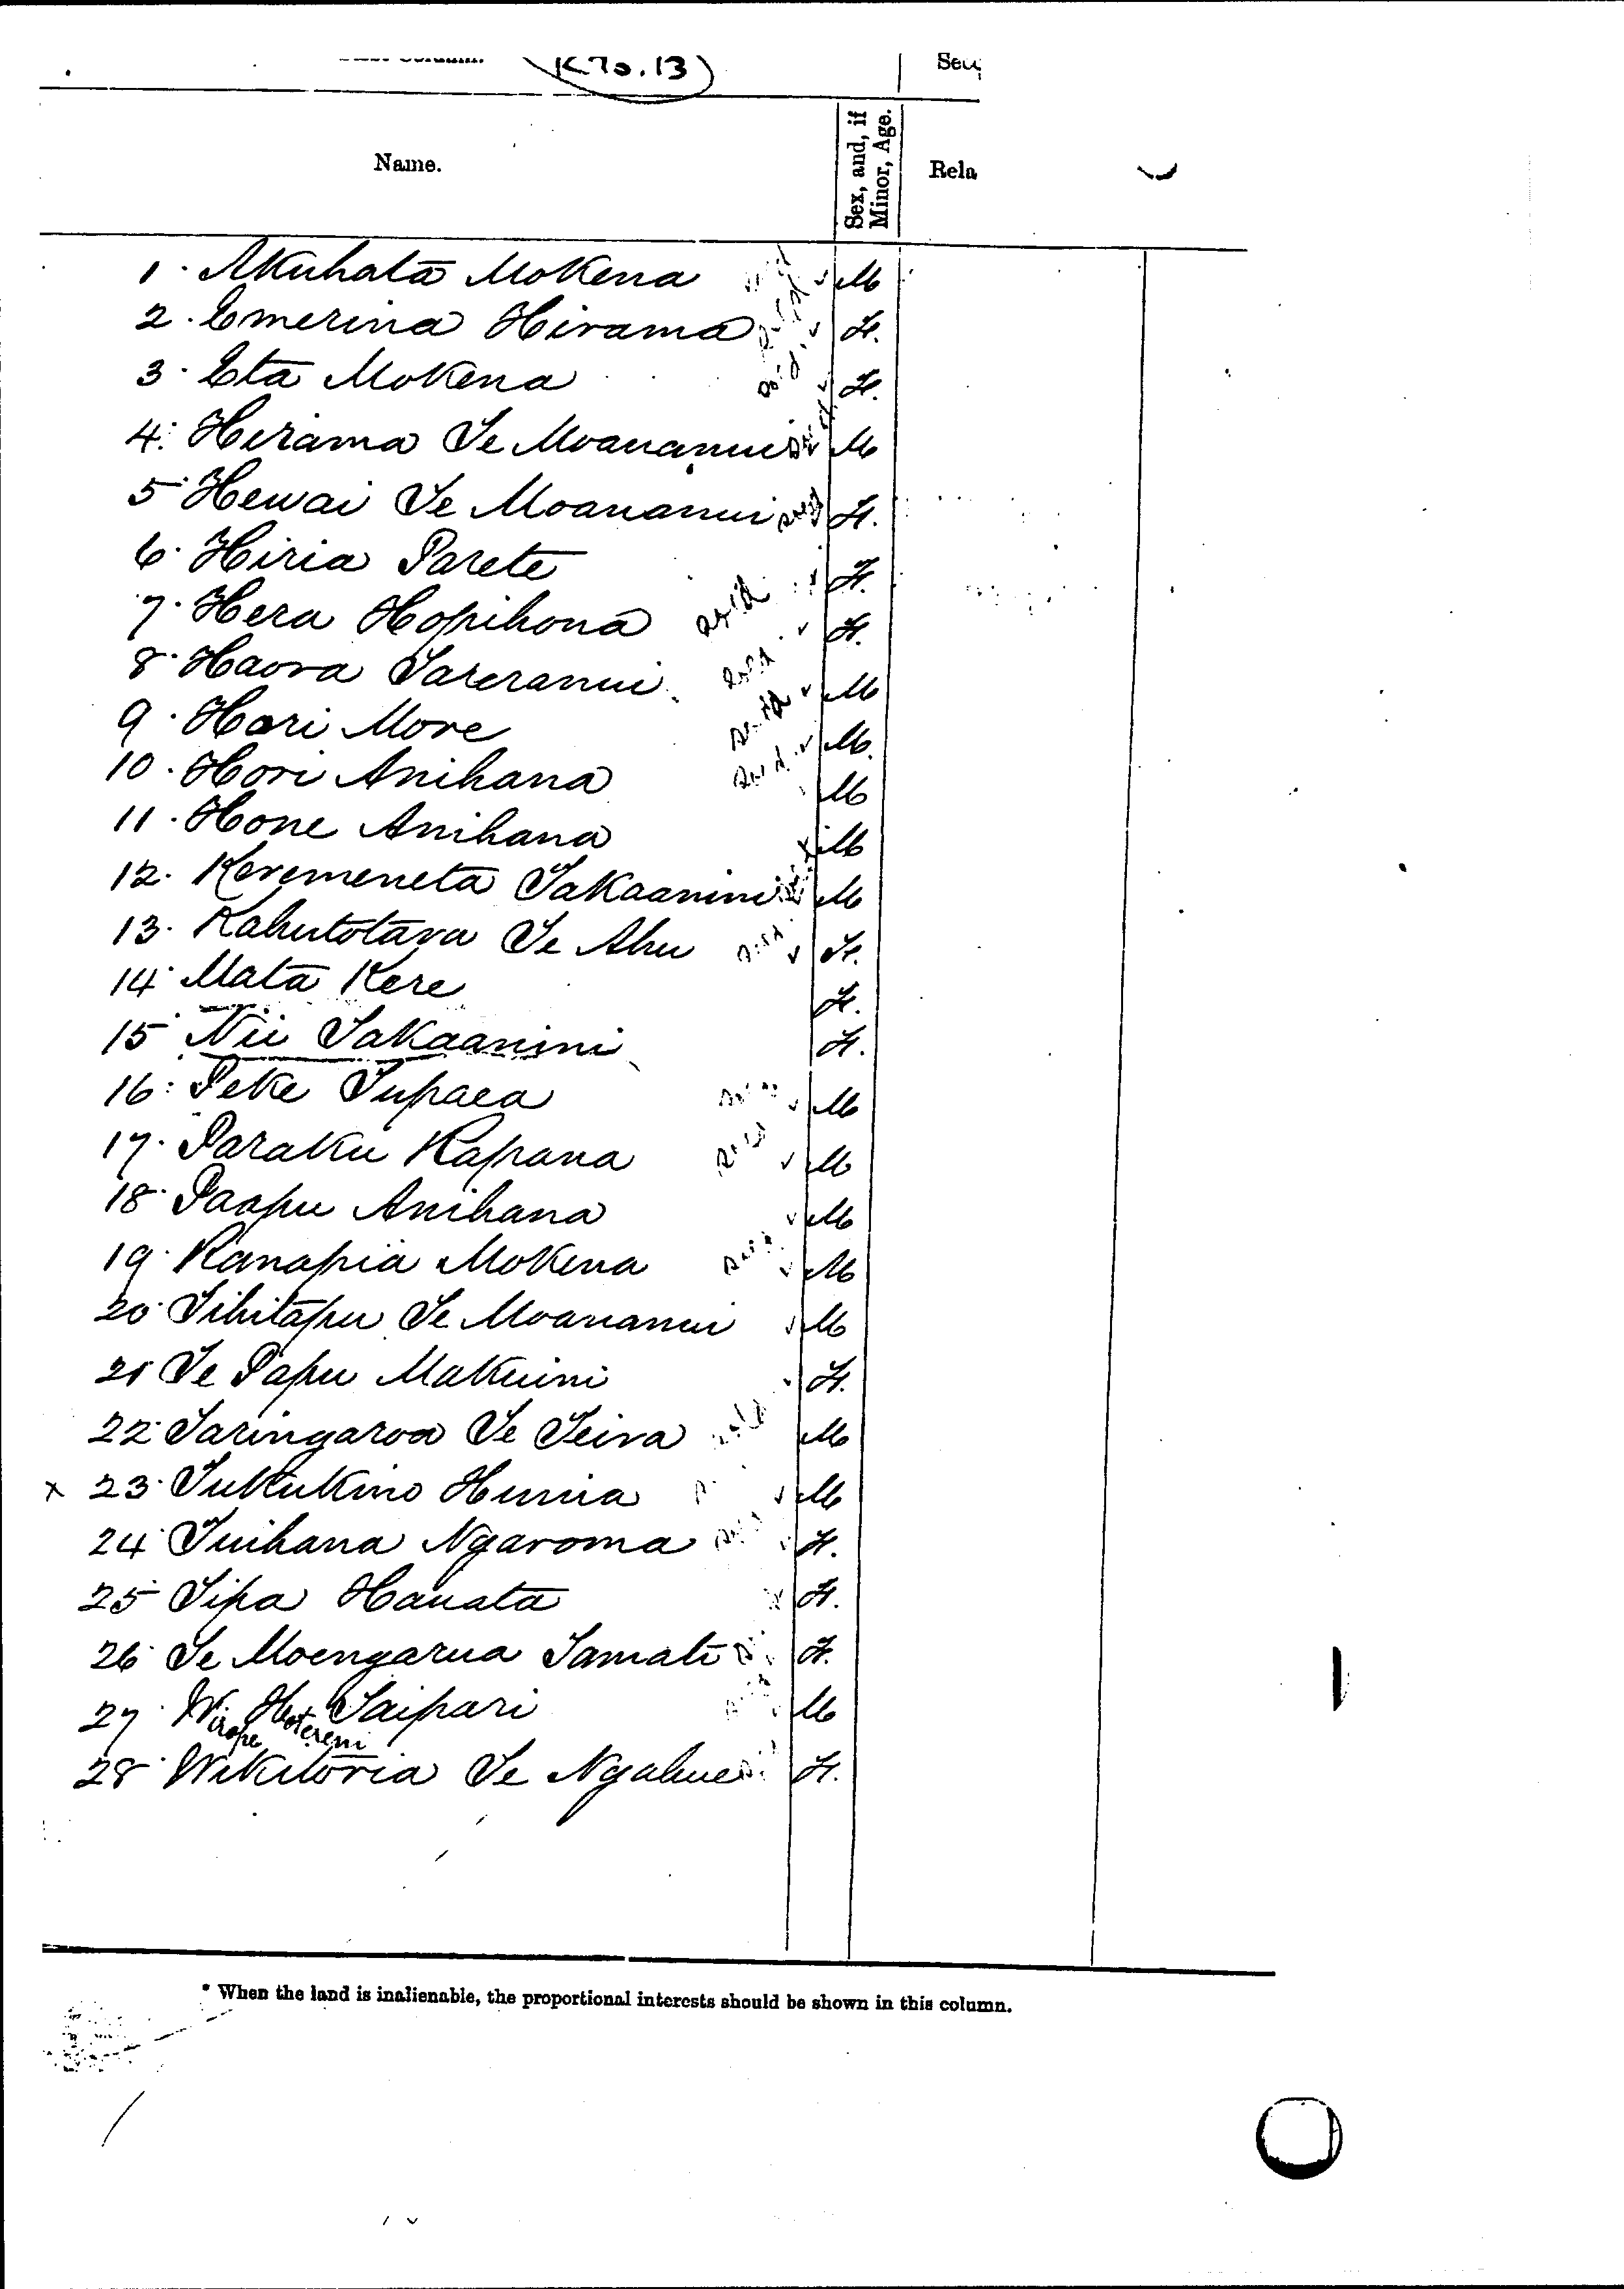 K70.13
Name.
Sex, and, if
Minor, Age.
Rela
1. Akuhata Mokena M
2. Emerina Hirama F.
3. Eta Mokena F.
4. Herama Te Moananui M
5 Hewai Te Moananui F.
6. Hiria Parete F.
7. Hera Hopihona F.
8. Haora Tareranui M
9. Hori More M.
10. Hori Anihana M
11. Hone Anihana M
12. Keremeneta Takaanini M
13. Kahutotara Te Ahu F.
14. Mata Kere F.
15 Nii Takaanini F.
16. Peke Tupaea M
17. Paraku Rapana M
18. Paapu Anihana M
19. Ranapia Mokena M
20. Tihitapu Te Moananui M
21 Te Papu Makuini F.
22 Taringaroa Te Teira M
x 23. Tukukino Huruia M
24 Tuihana Ngaroma F.
25 Tipa Hauata F.
26 Te Moengarua Tamati F.
27 Wirope Hotereni Taipari M
28 Wikitoria Te Ngahue F.
* When the land is inalienable, the proportional interests should be shown in this column.